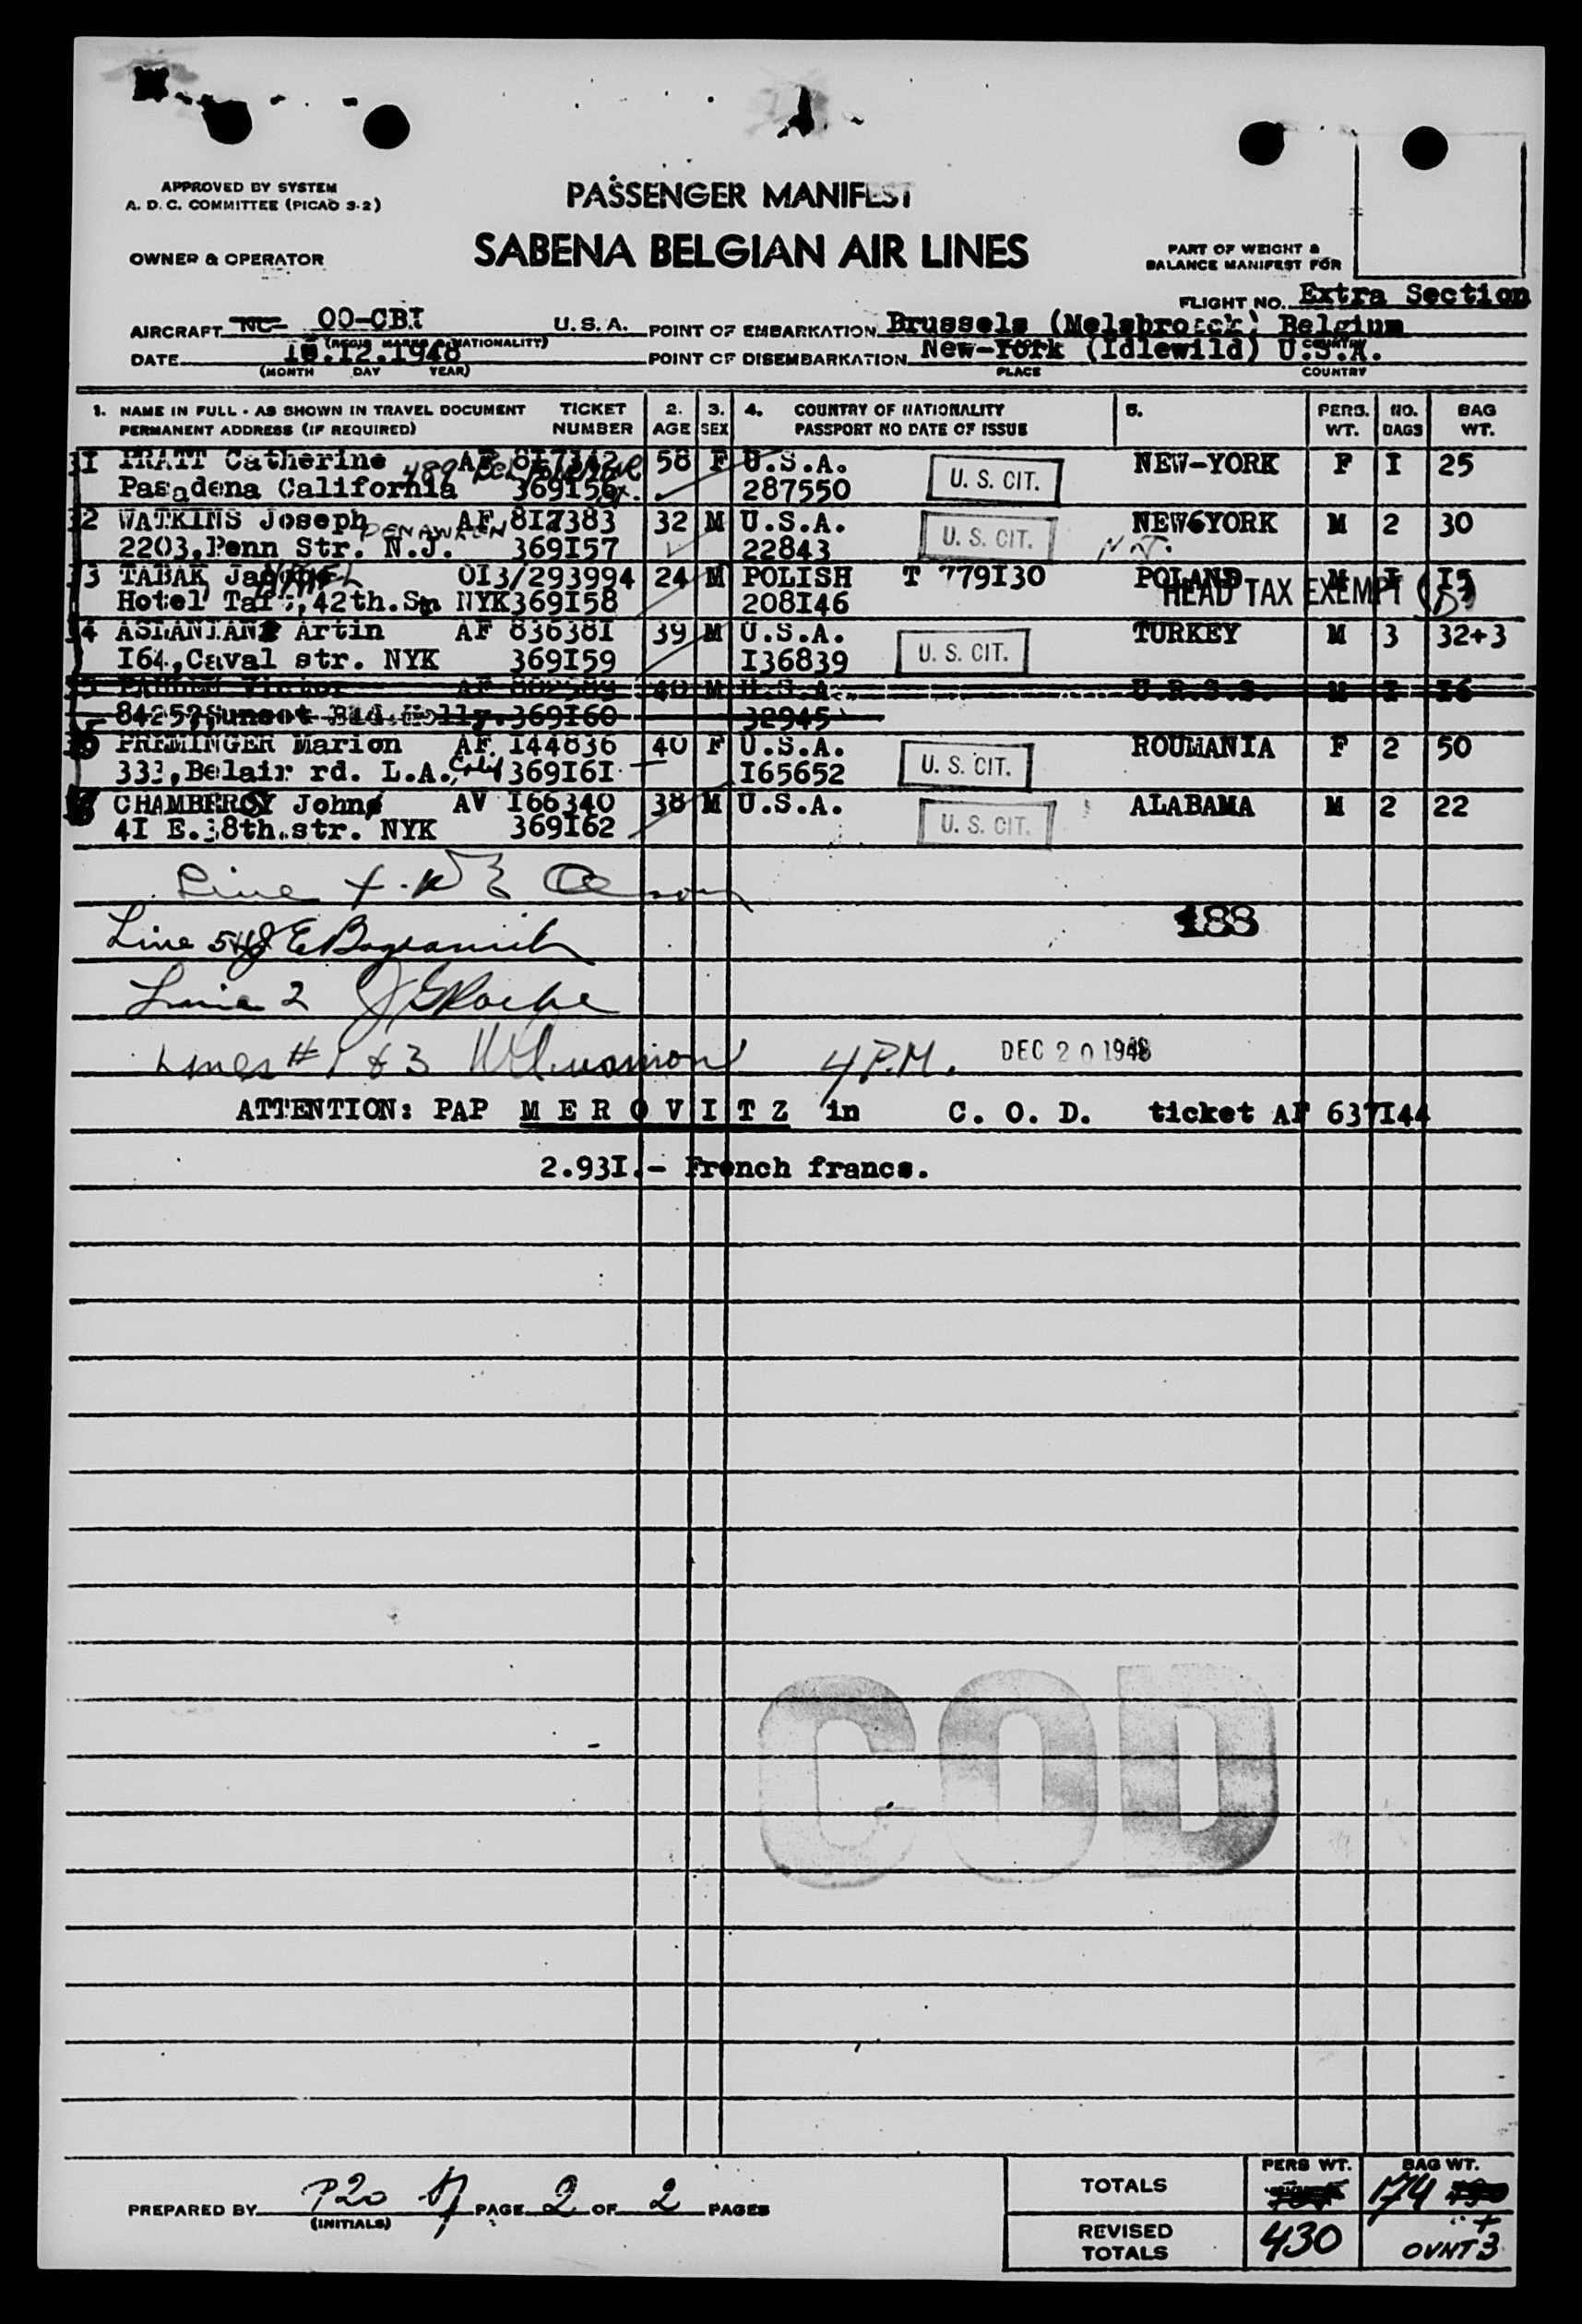 APPROVED BY SYSTEM
A. D. C. COMMITTEE (PICAO 3-2)
PASSENGER MANIFEST
OWNER & OPERATOR
SABENA BELGIAN AIR LINES
PART OF WEIGHT &
BALANCE MANIFEST FOR
FLIGHT NO. Extra Section
AIRCRAFT NC- OO-CBI U.S.A. POINT OF EMBARKATION Brussels (Melsbroeck) Belgium
(REGIS MARKS & NATIONALITY) COUNTRY
DATE .12.1948 POINT OF DISEMBARKATION New-York (Idlewild) U.S.A.
(MONTH DAY YEAR) PLACE COUNTRY
1. NAME IN FULL - AS SHOWN IN TRAVEL DOCUMENT TICKET 2. 3. 4. COUNTRY OF NATIONALITY 5. PERS. NO. BAG
PERMANENT ADDRESS (IF REQUIRED) NUMBER AGE SEX PASSPORT NO DATE OF ISSUE WT. BAGS WT.
31 PRATT Catherine AF 817342 58 F U.S.A. U. S. CIT. NEW-YORK F I 25
Pasadena California 489 36915 287550
32 WATKINS Joseph AF 817383 32 M U.S.A. U. S. CIT. NEW6YORK M 2 30
2203,Penn Str. N.J. 369I57 22843 N.J.
3 TABAK OI3/293994 24 M POLISH T 779I30 POLAND M I I5
Hotel Taft,42th.St NYK369I58 208I46 HEAD TAX EXEMPT
4 ASLANIAN Artin AF 83638I 39 M U.S.A. U. S. CIT. TURKEY M 3 32+3
I64,Caval str. NYK 369I59 I36839
Victor AF 40 M U.S.A. U.R.S.S. M I I6
8425?Sunset Bld.Holly.369I60 32945
PREMINGER Marion AF I44836 40 F U.S.A. U. S. CIT. ROUMANIA F 2 50
333,Belair rd. L.A., Calif 369I6I I65652
CHAMBERS John AV I66340 38 M U.S.A. U. S. CIT. ALABAMA M 2 22
4I E.38th.str. NYK 369I62
Line
188
Line 5
Line 2
Lines # 1 & 3 4 P.M. DEC 20 1948
ATTENTION: PAP M E R O V I T Z in C. O. D. ticket AF 637I44
2.93I.- French francs.
COD
PREPARED BY P20 PAGE 2 OF 2 PAGES
(INITIALS)
TOTALS PERS WT. BAG WT. 174
REVISED TOTALS 430 + OVNT 3